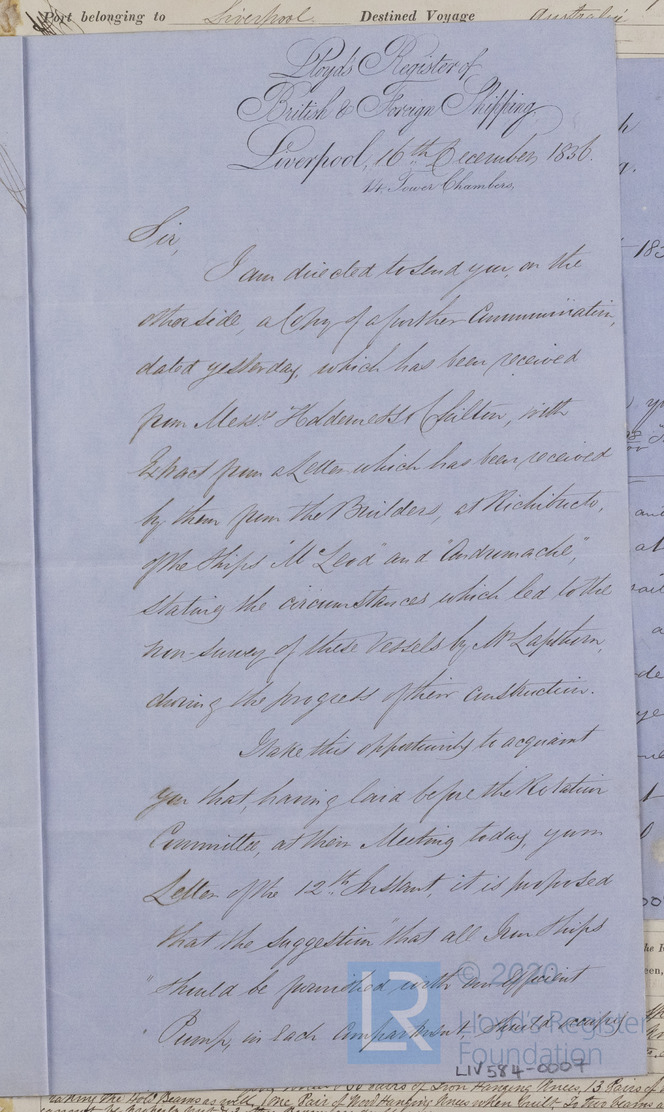 Port belonging to Liverpool Destined Voyage Australi
Lloyd's Register of
British & Foreign Shipping,
Liverpool, 16th December 1856.
14, Tower Chambers,
Sir,
I am directed to send you, on the
other side, a Copy of a further Communication,
dated yesterday, which has been received
from Messrs Holderness & Chilton, with
Extract from a Letter which has been received
by them from the Builders, at Richibucto,
of the Ships "McLeod" and "Andromache",
stating the circumstances which led to the
non-survey of these Vessels by Mr Lapthorn,
during the progress of their construction.
I take this opportunity to acquaint
you that, having laid before the Rotation
Committee, at their Meeting today, your
Letter of the 12th Instant, it is proposed
that the suggestion "that all Iron Ships
"should be furnished with an efficient
"Pump, in each Compartment," should
© 2020
LR
Lloyd's Register
Foundation
LIV584-0007